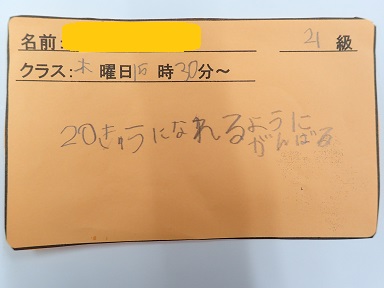 名前: 21 級
クラス: 木 曜日 15 時 30 分〜
20きゅうになれるように
がんばる